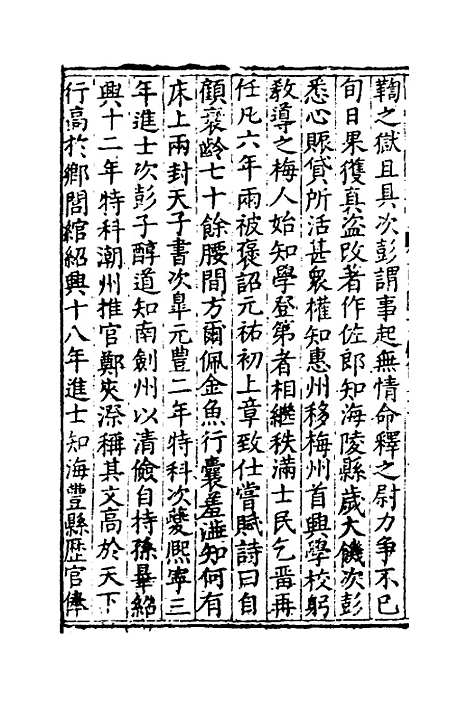 鞫之獄且具次彭謂事起無情命釋之尉力爭不已
旬日果獲真盜改著作佐郎知海陵縣歲大饑次彭
悉心賑貸所活甚衆權知惠州移梅州首興學校躬
敎導之梅人始知學登第者相繼秩滿士民乞畱再
任凡六年兩被褒詔元祐初上章致仕嘗賦詩曰自
顧衰齡七十餘腰間方爾佩金魚行囊羞澁知何有
床上兩封天子書次臯元豐二年特科次夔熈寧三
年進士次彭子醇道知南劍州以清儉自持孫畢紹
興十二年特科潮州推官鄭夾漈稱其文高於天下
行高於鄉閭綰紹興十八年進士知海豐縣歷官俸